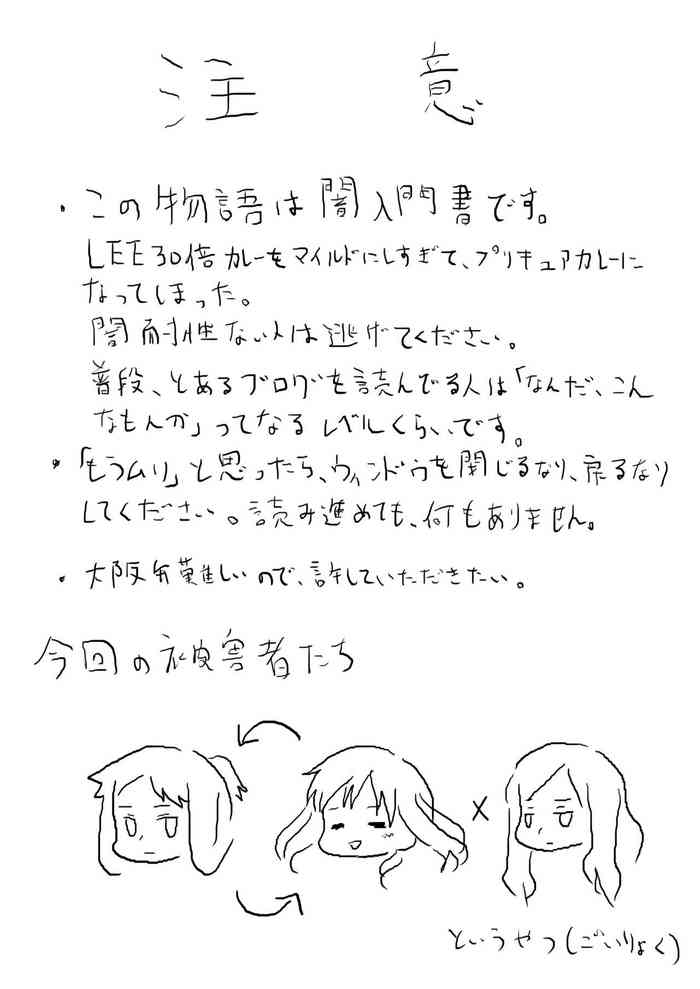 注意
・この物語は闇入門書です。
LEE30倍カレーをマイルドにしすぎて、プリキュアカレーに
なってしまった。
闇耐性ない人は逃げてください。
普段、とあるブログを読んでる人は「なんだ、こん
なもんか」ってなるレベルくらいです。
・「もうムリ」と思ったら、ウィンドウを閉じるなり、戻るなり
してください。読み進めても、何もありません。
・大阪弁難しいので、許していただきたい。
今回の被害者たち
×
というやつ(ごいりょく)